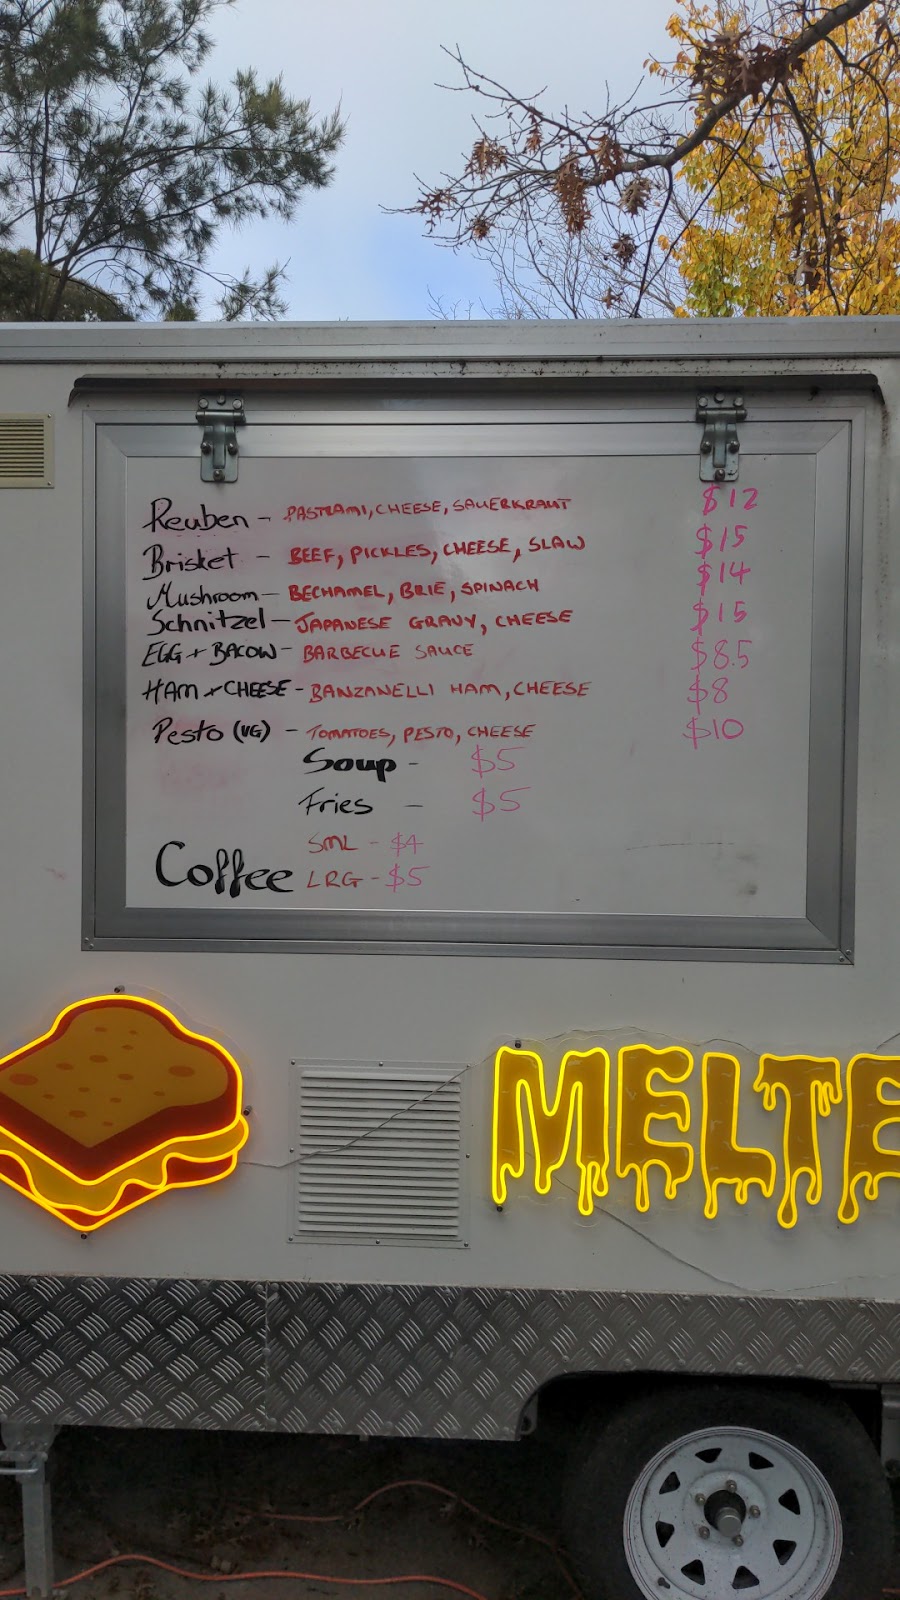 Reuben - PASTRAMI, CHEESE, SAUERKRAUT $12
Brisket - BEEF, PICKLES, CHEESE, SLAW $15
Mushroom - BECHAMEL, BRIE, SPINACH $14
Schnitzel - JAPANESE GRAVY, CHEESE $15
EGG + BACOW - BARBECUE SAUCE $8.5
HAM + CHEESE - BANZANELLI HAM, CHEESE $8
Pesto (VG) - TOMATOES, PESTO, CHEESE $10
Soup - $5
Fries - $5
Coffee SML - $4
LRG - $5
MELTE